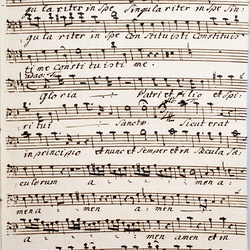 gula riter in Spe Singula riter in Spe Sin
gu la riter in Spe con Stituisti Constituis
ti me Consti tuisti me.
Gloria Patri et Filio et Spi
ritui Sancto Sicut erat
in principio et nunc et Semper et in Saecula Sae
culorum a men a
men a a men a men
a men amen et in